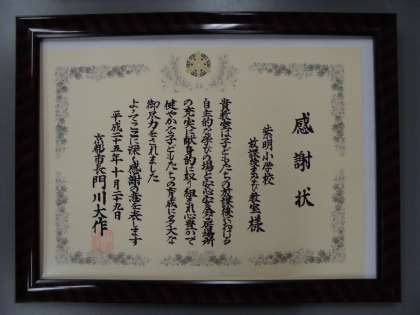 感謝状
崇明小学校
放課後まなび教室様
貴教室は子どもたちの放課後における
自主的な学びの場と安心安全な居場所
の充実に献身的に取り組まれ心豊かで
健やかな子どもたちの育成に多大な
御尽力をされました
よってここに深く感謝の意を表します
平成二十五年十月二十九日
京都市長 門川大作